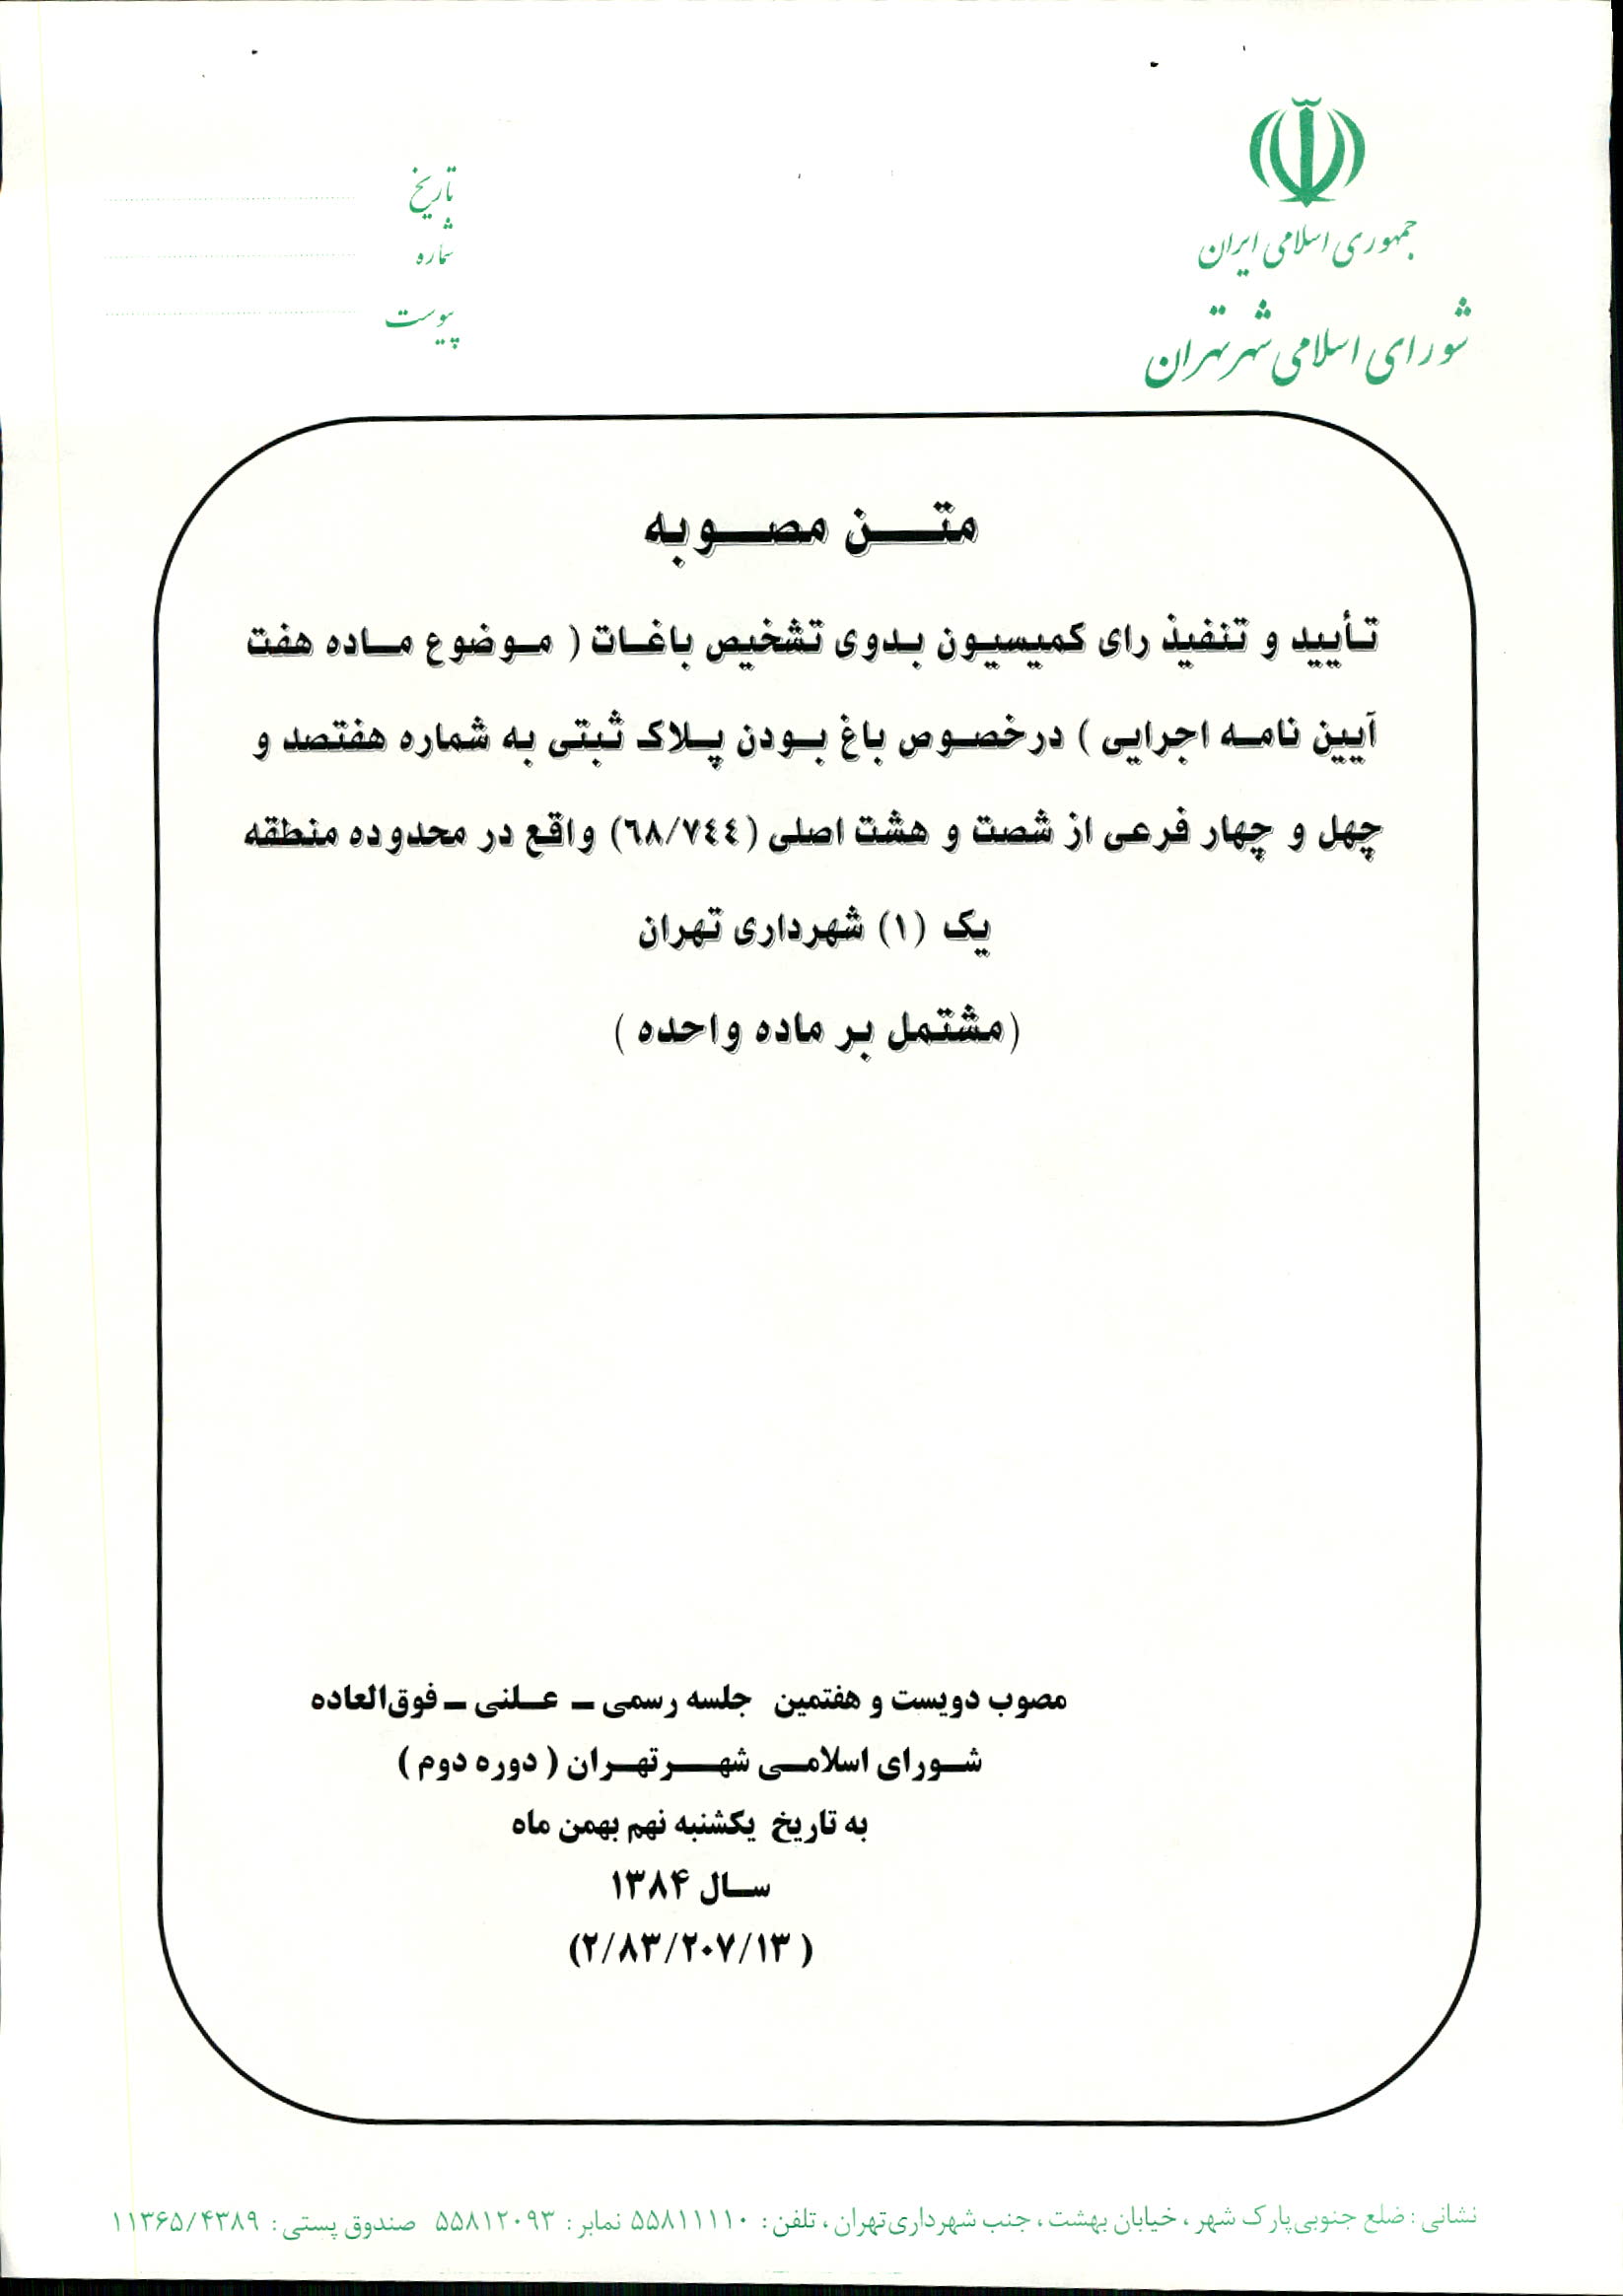 جمهوری اسلامی ایران
شورای اسلامی شهر تهران
تاریخ
شماره
پیوست
متن مصوبه
تأیید و تنفیذ رای کمیسیون بدوی تشخیص باغات ( موضوع ماده هفت
آیین نامه اجرایی ) درخصوص باغ بودن پلاک ثبتی به شماره هفتصد و
چهل و چهار فرعی از شصت و هشت اصلی (٦٨/٧٤٤) واقع در محدوده منطقه
یک (۱) شهرداری تهران
(مشتمل بر ماده واحده )
مصوب دویست و هفتمین جلسه رسمی – علنی – فوق‌العاده
شورای اسلامی شهرتهران ( دوره دوم )
به تاریخ یکشنبه نهم بهمن ماه
سال ۱۳۸۴
(۲/۸۳/۲۰۷/۱۳ )
نشانی : ضلع جنوبی پارک شهر ، خیابان بهشت ، جنب شهرداری تهران ، تلفن : ۵۵۸۱۱۱۱۰ نمابر : ۵۵۸۱۲۰۹۳ صندوق پستی : ۱۱۳۶۵/۴۳۸۹